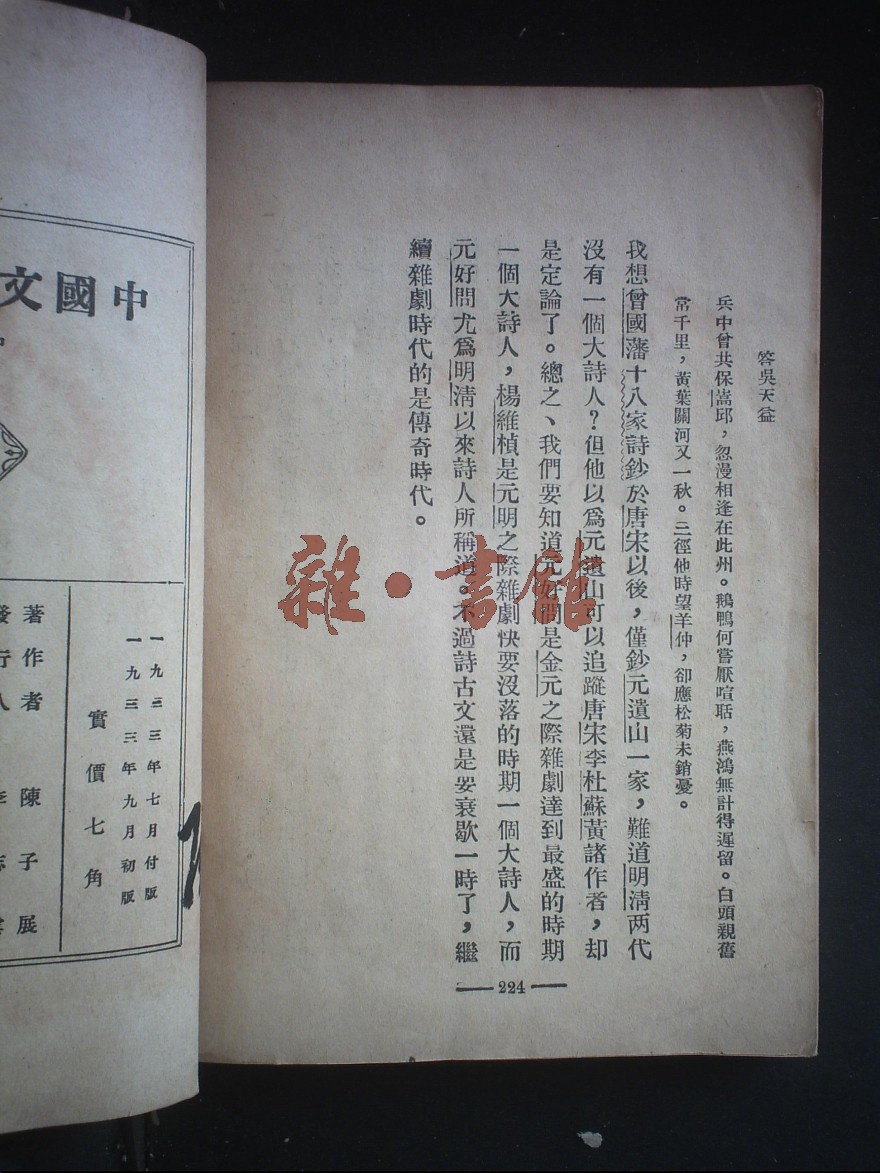 答吳天益
兵中曾共保嵩邱，忽漫相逢在此州。鵝鴨何嘗厭喧聒，燕鴻無計得遲留。白頭親舊
常千里，黃葉關河又一秋。三徑他時望羊仲，卻應松菊未銷憂。
我想曾國藩十八家詩鈔於唐宋以後，僅鈔元遺山一家，難道明清两代
沒有一個大詩人？但他以爲元遺山可以追蹤唐宋李杜蘇黃諸作者，却
是定論了。總之、我們要知道元好問是金元之際雜劇達到最盛的時期
一個大詩人，楊維楨是元明之際雜劇快要沒落的時期一個大詩人，而
元好問尤爲明清以來詩人所稱道。不過詩古文還是要衰歇一時了，繼
續雜劇時代的是傳奇時代。
224
雜·書館
中國文
一九三三年七月付版
一九三三年九月初版
實價七角
著作者 陳子展
發行人 李志雲